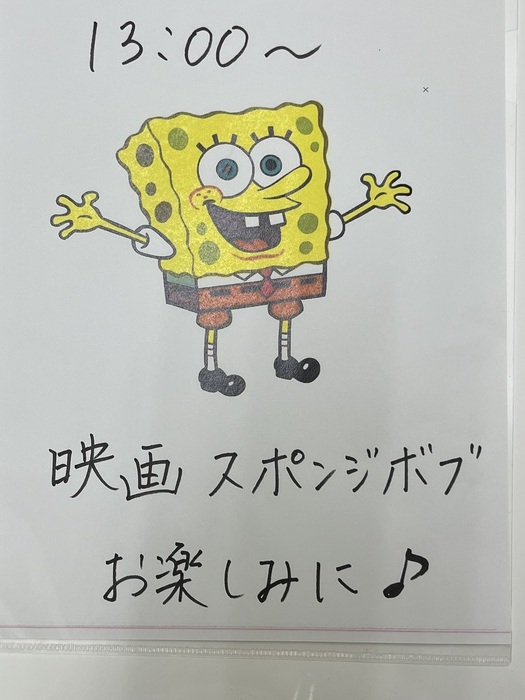 13:00〜
映画 スポンジボブ
お楽しみに♪